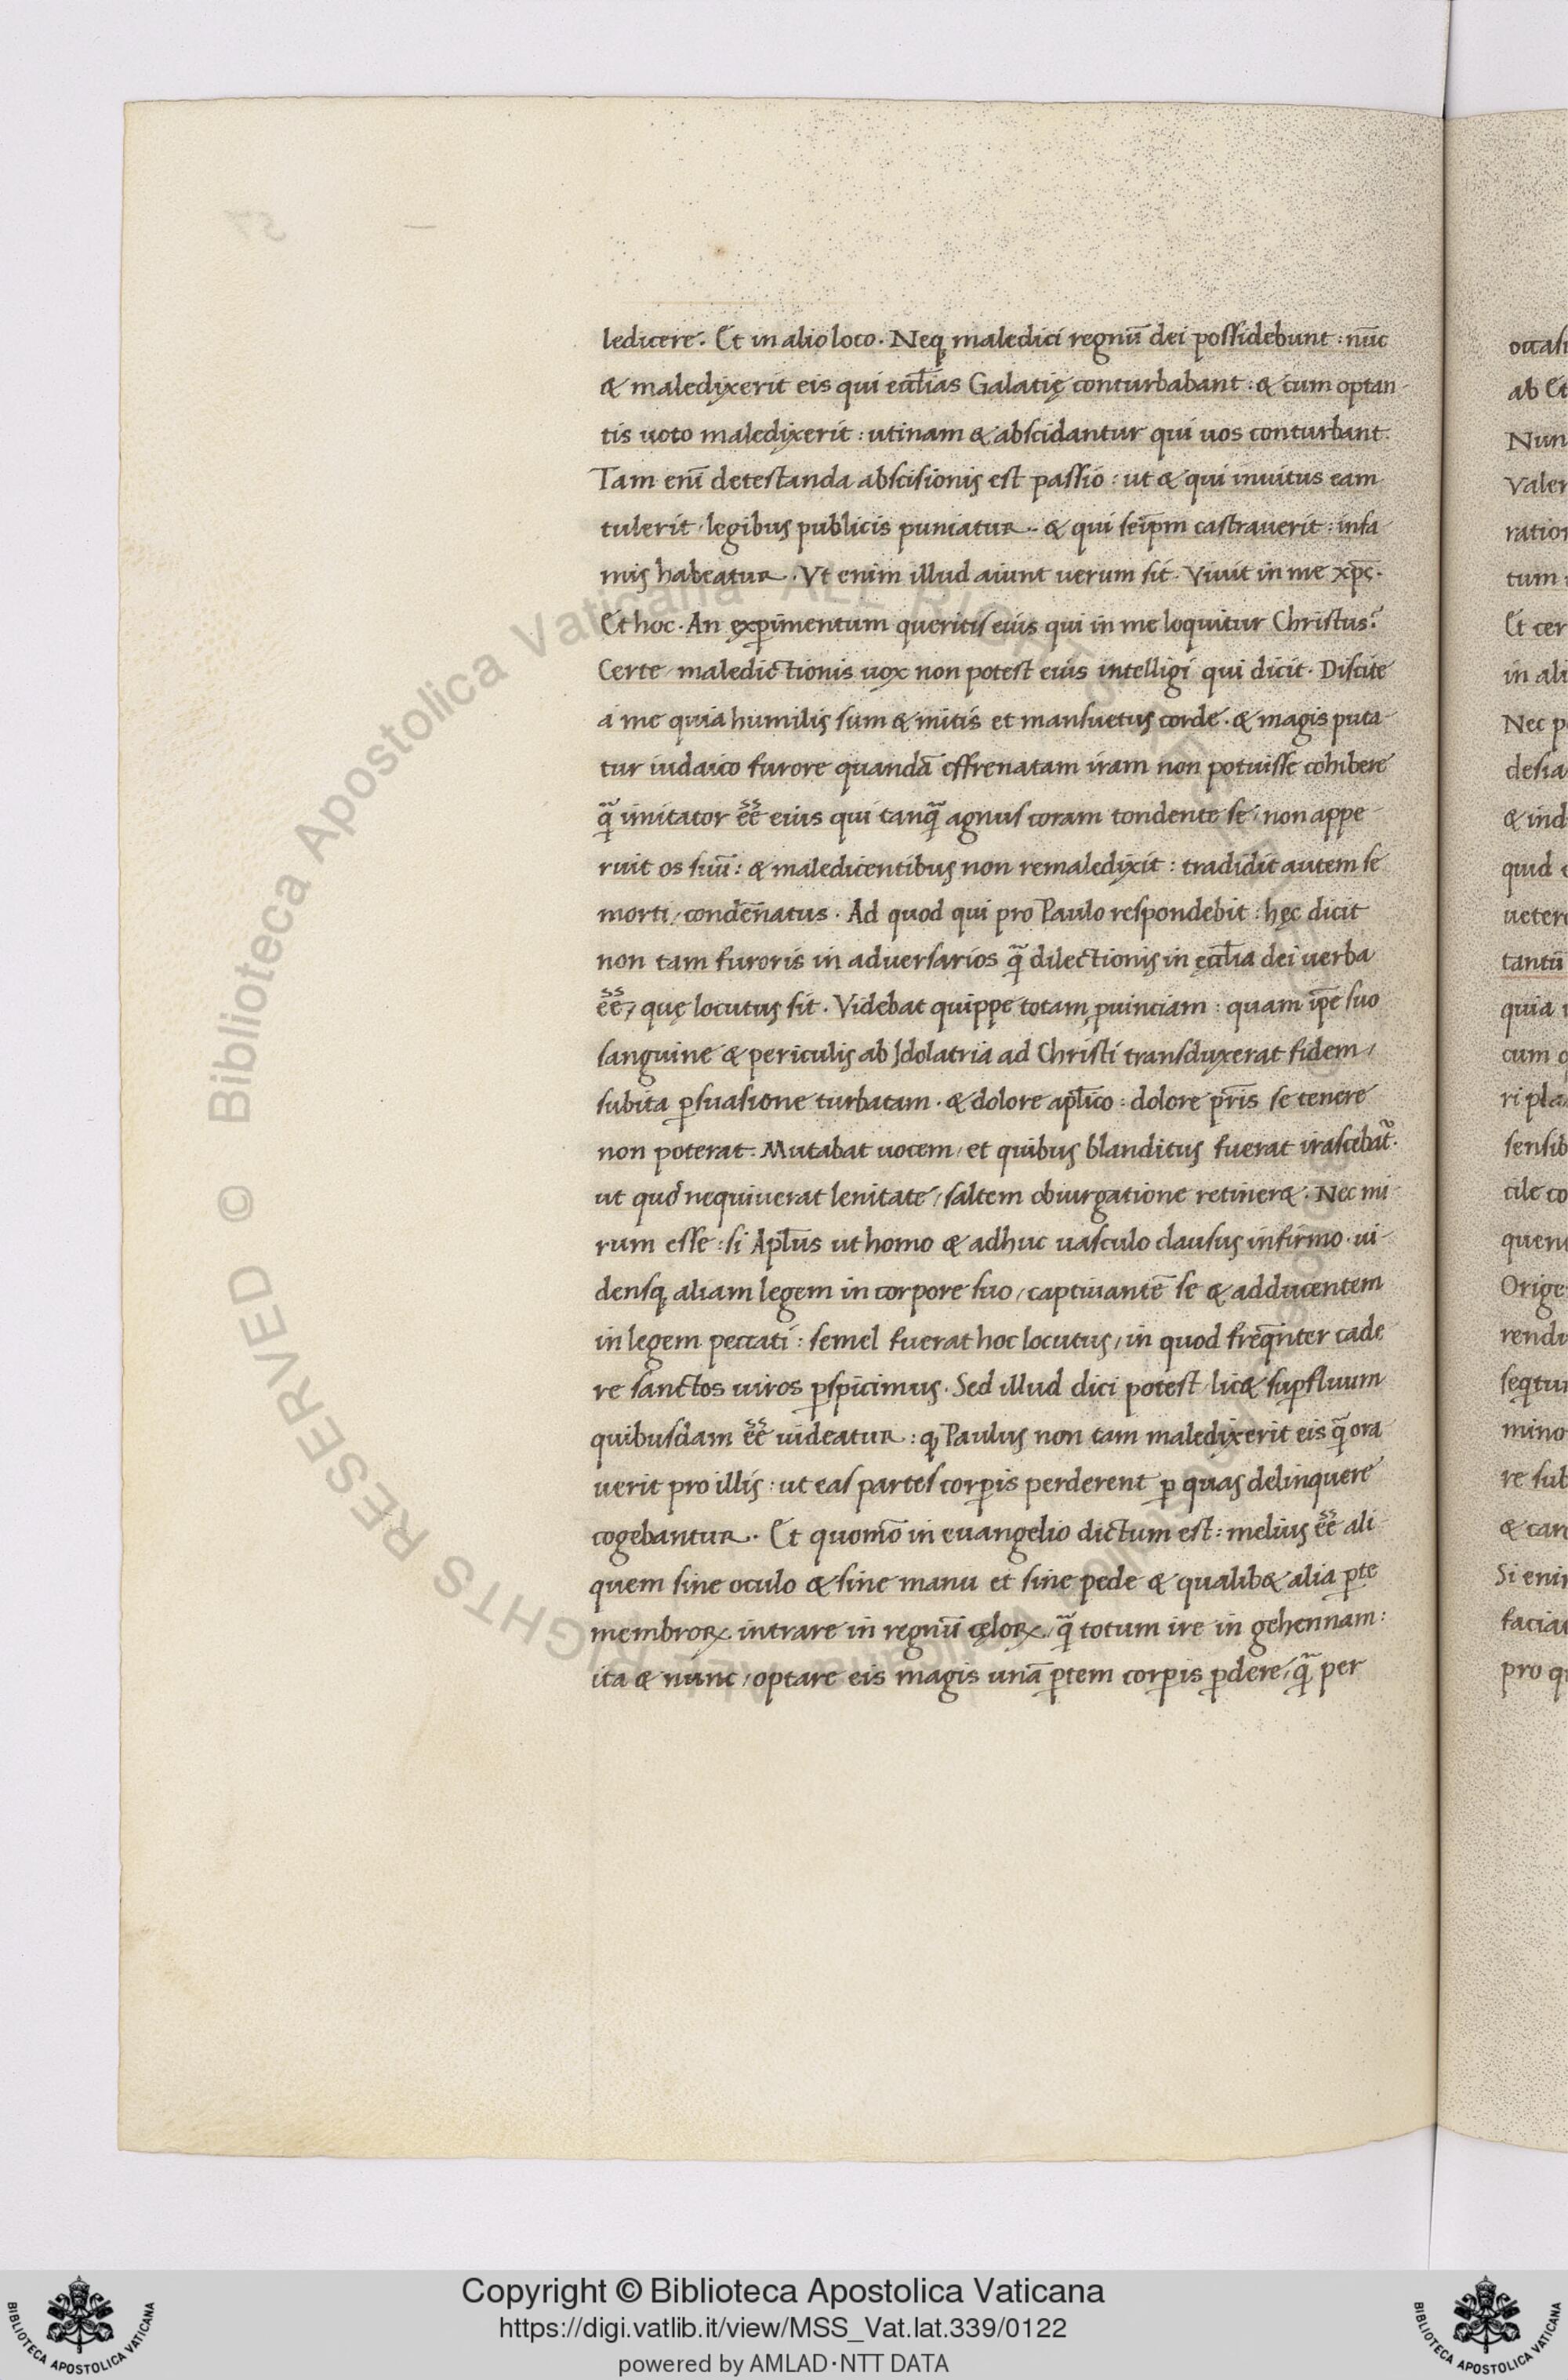 ledicere. Et in alio loco. Neq; maledici regnū dei possidebunt: nūc
& maledixerit eis qui eccl̄ias Galatię conturbabant: & cum optan
tis uoto maledixerit: utinam & abscidantur qui uos conturbant.
Tam enī detestanda abscisionis est passio: ut & qui inuitus eam
tulerit, legibus publicis puniatur. & qui seip̄m castrauerit: infa
mis habeatur. Vt enim illud aiunt uerum sit. Viuit in me xp̄c.
Et hoc. An exꝑimentum queritis eius qui in me loquitur Christus?
Certe, maledictionis uox non potest eius intelligi qui dicit. Discite
a me quia humilis sum & mitis et mansuetus corde. & magis puta
tur iudaico furore quandā effrenatam iram non potuisse cohibere
q̄ imitator ēē eius qui tanq̄ agnus coram tondente se, non appe
ruit os suū: & maledicentibus non remaledixit: tradidit autem se
morti, condēnatus. Ad quod qui pro Paulo respondebit: hęc dicit
non tam furoris in aduersarios q̄ dilectionis in ęccl̄ia dei uerba
ēē, quę locutus sit. Videbat quippe totam ꝓuinciam: quam ip̄e suo
sanguine & periculis ab Idolatria ad Christi transduxerat fidem,
subita ꝑsuasione turbatam. & dolore apl̄ico: dolore pr̄is se tenere
non poterat. Mutabat uocem, et quibus blanditus fuerat irascebat̄.
ut quos nequiuerat lenitate, saltem obiurgatione retiner&. Nec mi
rum esse: si Apl̄us ut homo & adhuc uasculo clausus infirmo, ui
densq; aliam legem in corpore suo, captiuantē se & adducentem
in legem peccati: semel fuerat hoc locutus, in quod freq̄nter cade
re sanctos uiros ꝑspicimus. Sed illud dici potest, lic& suꝑfluum
quibusdam ēē uideatur: q; Paulus non tam maledixerit eis q̄ ora
uerit pro illis: ut eas partes corꝑis perderent ꝑ quas delinquere
cogebantur. Et quomō in euangelio dictum est: melius ēē ali
quem sine oculo & sine manu et sine pede & qualib& alia ꝑte
membroꝝ intrare in regnū cęloꝝ, q̄ totum ire in gehennam:
ita & nunc, optare eis magis unā ꝑtem corꝑis ꝑdere, q̄ per
ab Et
Nun
Valer
ratior
tum
Et cer
in ali
Nec p
desia
& ind
quid
uetere
tantū
quia
cum
ri pla
sensib
cile co
quen
Orige
rendu
seqtur
mino
re sub
& car
Si enim
pro q
© Biblioteca Apostolica Vaticana ALL RIGHTS RESERVED
Copyright © Biblioteca Apostolica Vaticana
https://digi.vatlib.it/view/MSS_Vat.lat.339/0122
powered by AMLAD·NTT DATA
BIBLIOTECA APOSTOLICA VATICANA
BIBLIOTECA APOSTOLICA VATICANA